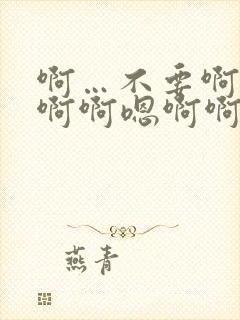 啊…不要啊
啊啊嗯啊啊
燕青